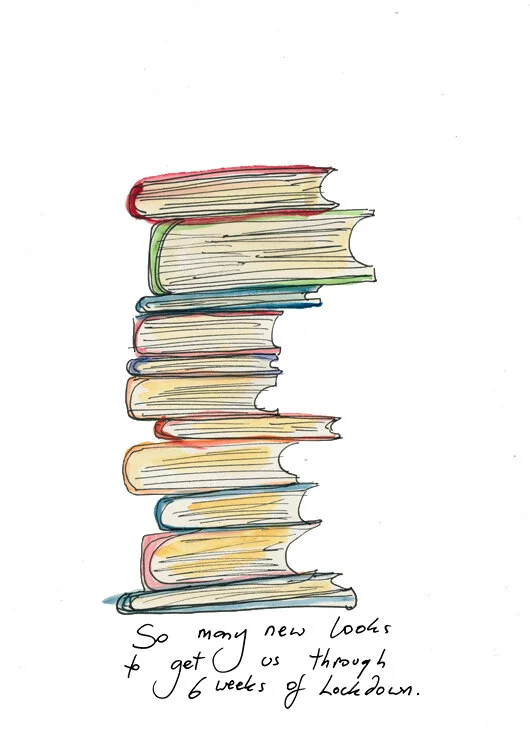 So many new books
to get us through
6 weeks of Lockdown.